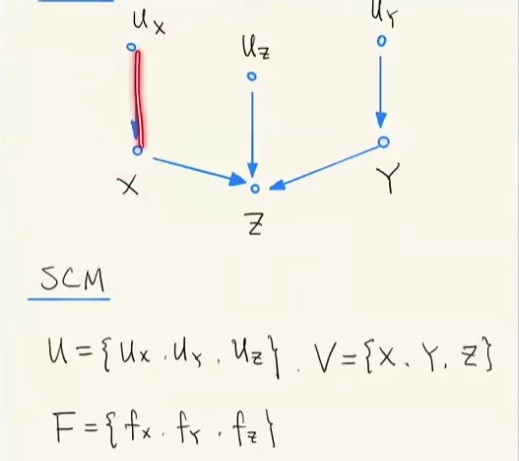 U_X
U_Y
U_Z
X
Y
Z
SCM
U = {U_X, U_Y, U_Z}. V = {X, Y, Z}
F = {f_X, f_Y, f_Z}